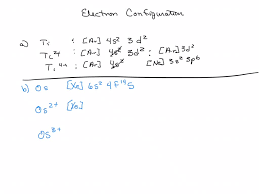 Electron Configuration
a) Ti : [Ar] 4s² 3d²
Ti²⁺ : [Ar] 4s² 3d² : [Ar] 3d²
Ti⁴⁺ : [Ar] 4s² [Ne] 3s² 3p⁶
b) Os [Xe] 6s² 4F¹⁴ 5
Os²⁺ [Xe]
Os³⁺